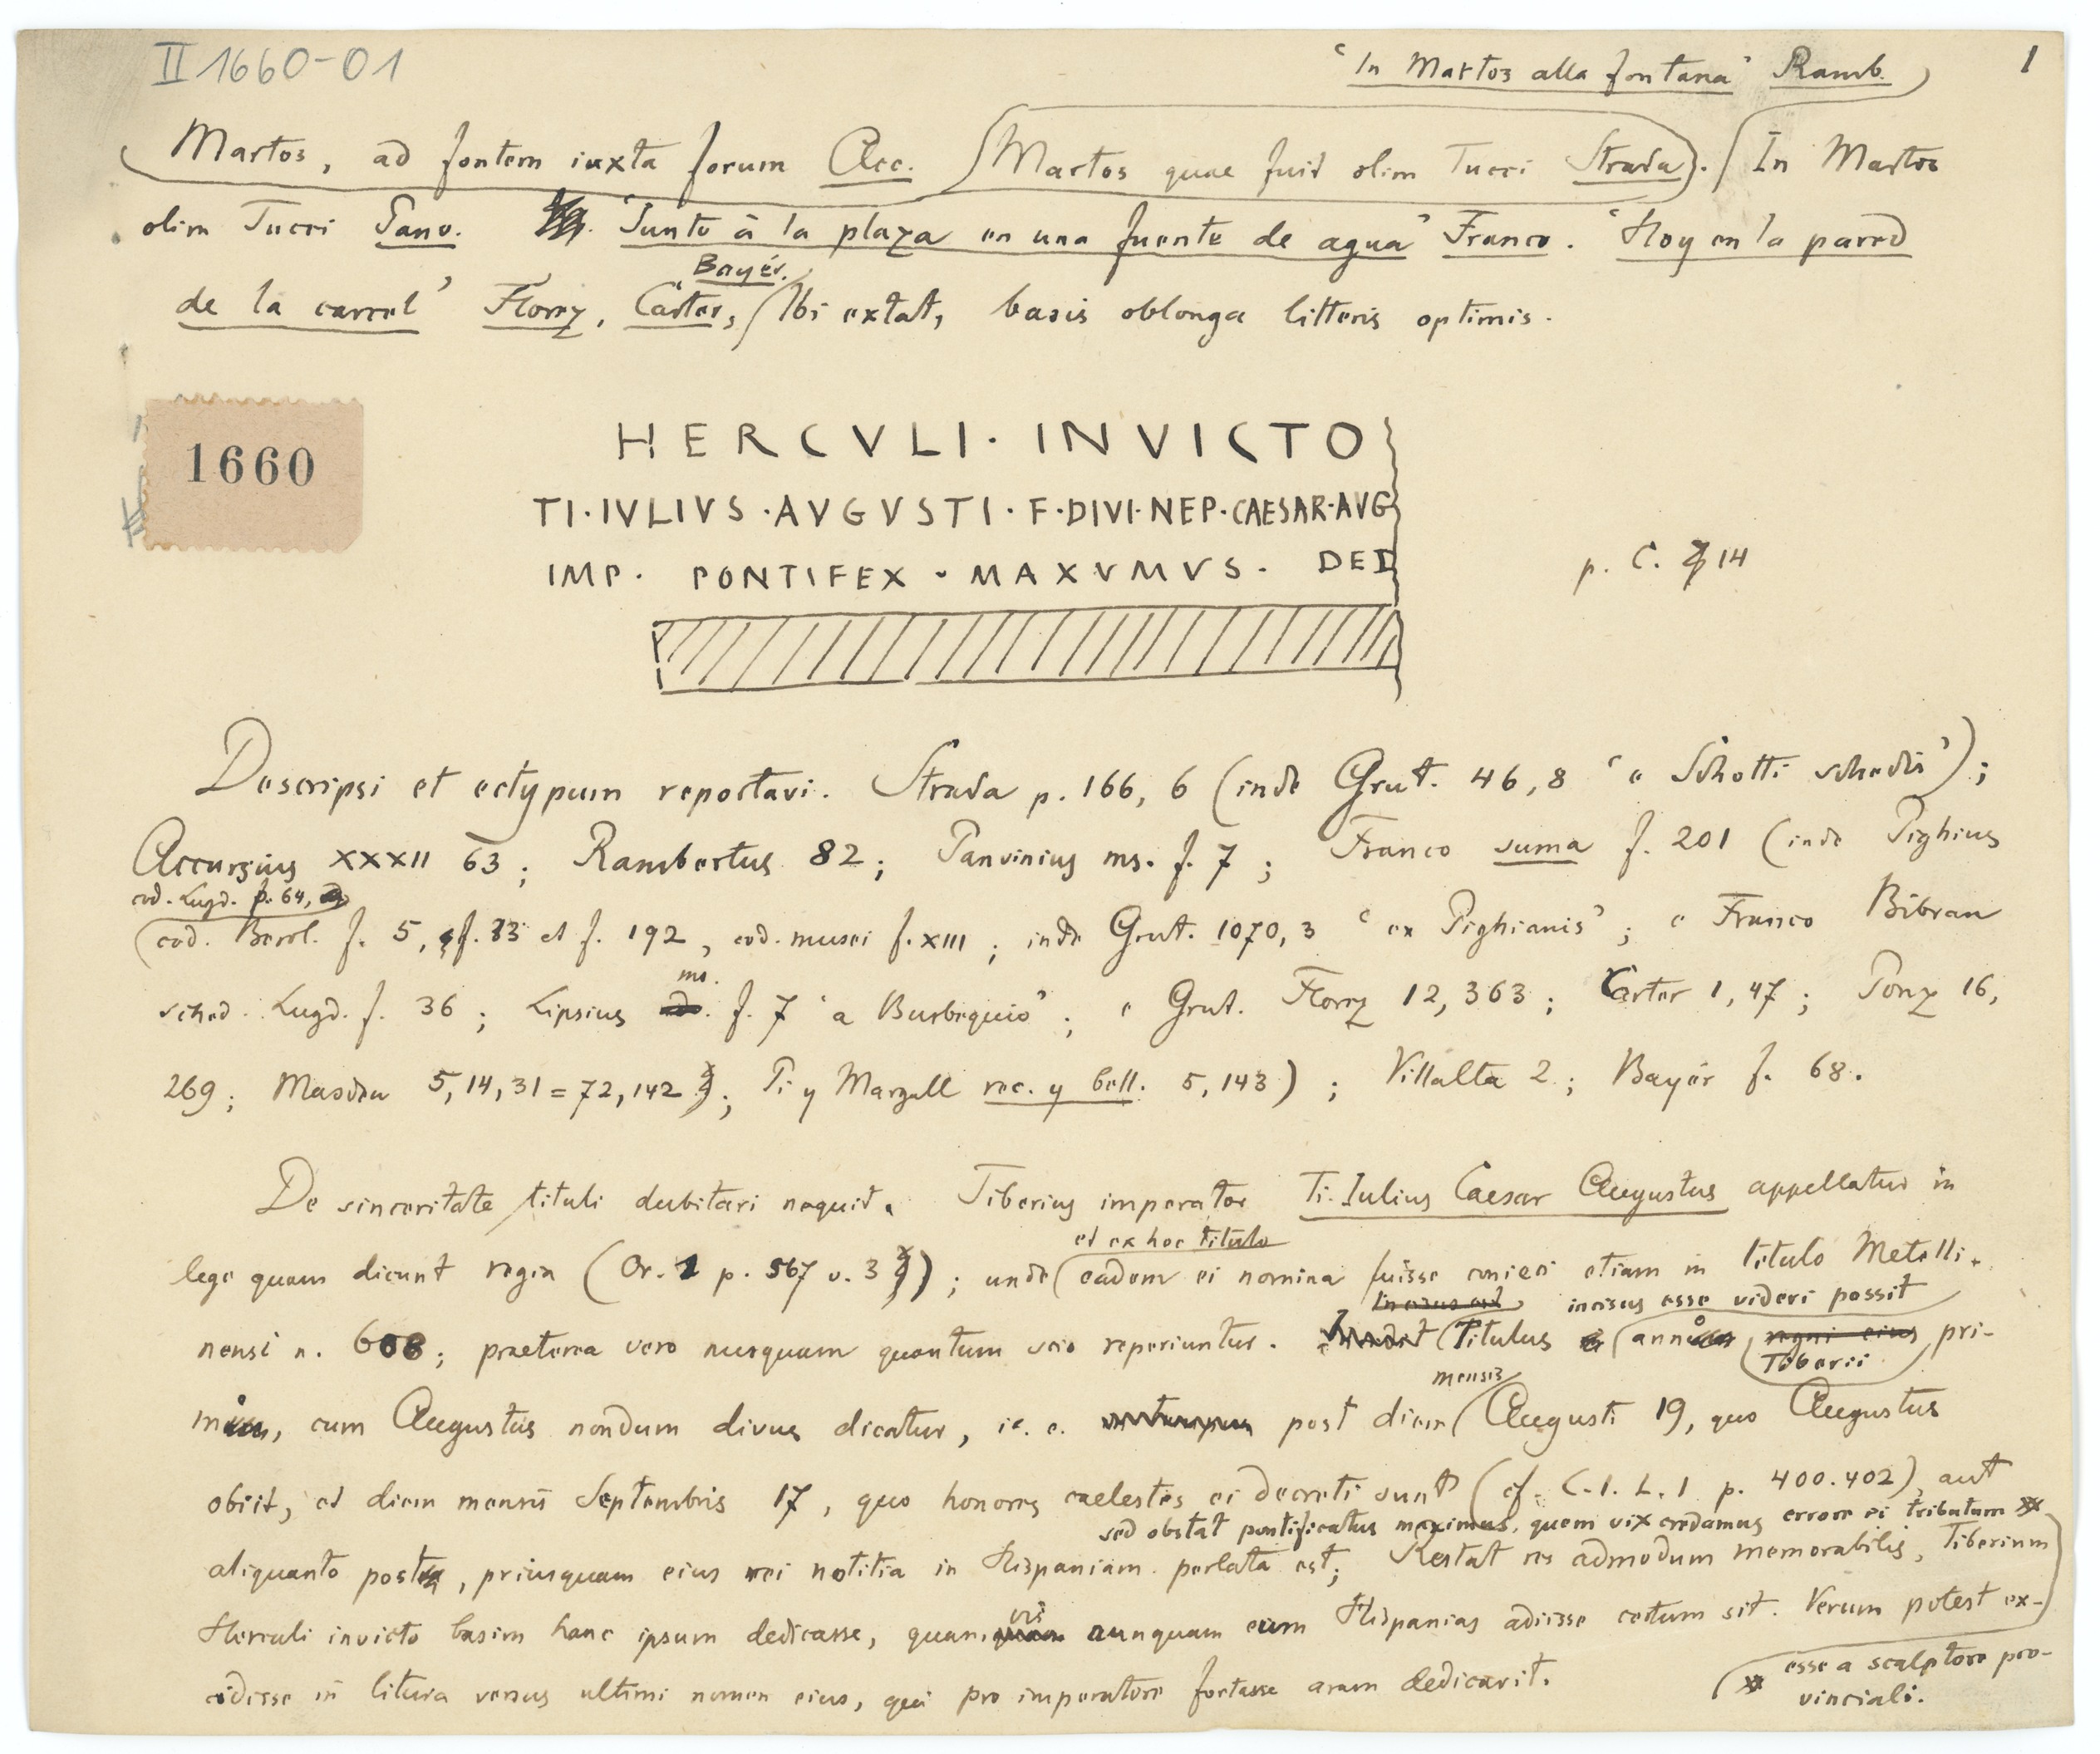 II 1660-01
‘In Martos alla fontana’ Ramb.
1
Martos, ad fontem iuxta forum Acc. (Martos quae fuit olim Tucci Strada). In Martos
olim Tucci Panv. ‘Junto à la plaza en una fuente de agua’ Franco. ‘Hoy en la pared
Bayér.
de la carcel’ Florez, Carter, Ibi extat, basis oblonga litteris optimis.
1660
HERCVLI · INVICTO
TI·IVLIVS·AVGVSTI·F·DIVI·NEP·CAESAR·AVG
IMP· PONTIFEX · MAXVMVS · DED
p. C. 14
Descripsi et ectypum reportavi. Strada p. 166, 6 (inde Grut. 46,8 ‘e Schotti schedis’);
Accursius XXXII 63; Rambertus 82; Panvinius ms. f. 7; Franco suma f. 201 (inde Pighius
cod. Lugd. p. 64,
cod. Berol. f. 5, f. 83 et f. 192, cod. musei f. XIII; inde Grut. 1070,3 ‘ex Pighianis’; e Franco Bibran
ms.
sched. Lugd. f. 36; Lipsius f. 7 ‘a Busbequio’; e Grut. Florez 12, 363; Carter 1, 47; Ponz 16,
269; Masdeu 5, 14, 31 = 72, 142; Pi y Margall rec. y bell. 5, 143); Villalta 2; Bayér f. 68.
De sinceritate tituli dubitari nequit. Tiberius imperator Ti. Iulius Caesar Augustus appellatur in
et ex hoc titulo
lege quam dicunt regia (Or. 1 p. 567 v. 3); unde eadem ei nomina fuisse conieci etiam in titulo Metelli-
incisus est incisus esse videri possit
nensi n. 608; praeterea vero nusquam quantum scio reperiuntur. Titulus anno regni eius pri-
Tiberii
mensis
mo, cum Augustus nondum divus dicatur, i. e. post diem Augusti 19, quo Augustus
obiit, et diem mensis Septembris 17, quo honores caelestes ei decreti sunt (cf. C. I. L. I p. 400. 402), aut
sed obstat pontificatus maximus, quem vix credamus errore ei tributum
aliquanto post, priusquam eius rei notitia in Hispaniam perlata est; Restat res admodum memorabilis, Tiberium
vis
Herculi invicto basim hanc ipsum dedicasse, quam nunquam eum Hispanias adiisse certum sit. Verum potest ex-
cidisse in litura versus ultimi nomen eius, qui pro imperatore fortasse aram dedicavit.
esse a scalptore pro-
vinciali.